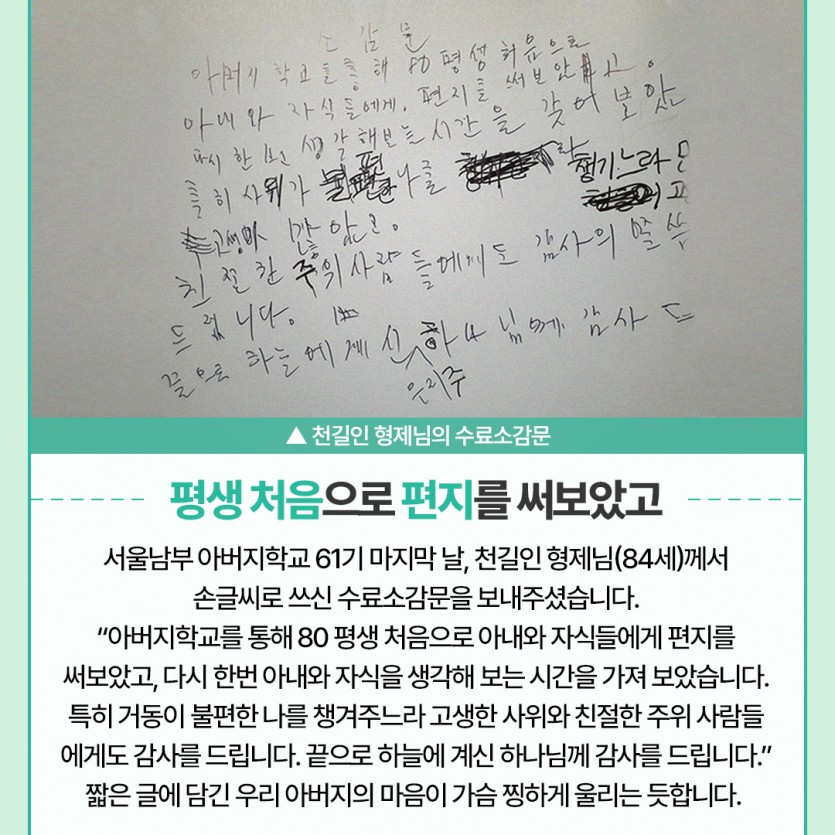 소감문
아버지학교를통해 80평생 처음으로
아내와 자식들에게. 편지를 써보았고.
한번 생각해보는시간을 갖어보았
사위가 나를 챙기느라
고생
친절한 주위사람들에게도 감사의 말
드립니다.
끝으로 하늘에게신 하나님께 감사드
▲ 천길인 형제님의 수료소감문
평생 처음으로 편지를 써보았고
서울남부 아버지학교 61기 마지막 날, 천길인 형제님(84세)께서
손글씨로 쓰신 수료소감문을 보내주셨습니다.
“아버지학교를 통해 80 평생 처음으로 아내와 자식들에게 편지를
써보았고, 다시 한번 아내와 자식을 생각해 보는 시간을 가져 보았습니다.
특히 거동이 불편한 나를 챙겨주느라 고생한 사위와 친절한 주위 사람들
에게도 감사를 드립니다. 끝으로 하늘에 계신 하나님께 감사를 드립니다.”
짧은 글에 담긴 우리 아버지의 마음이 가슴 찡하게 울리는 듯합니다.